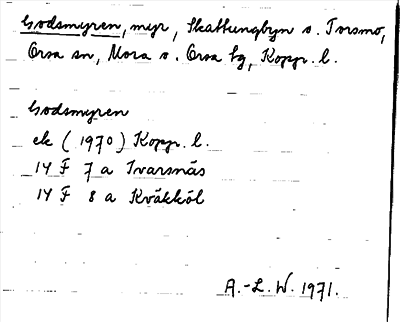 Godsmyren, myr, Skattungbyn o. Torsmo,
Orsa sn, Mora o. Orsa tg, Kopp. l.
Godsmyren
ek (1970) Kopp. l.
14 F 7 a Tvarsnäs
14 F 8 a Kväkköl
A.-L. W. 1971.